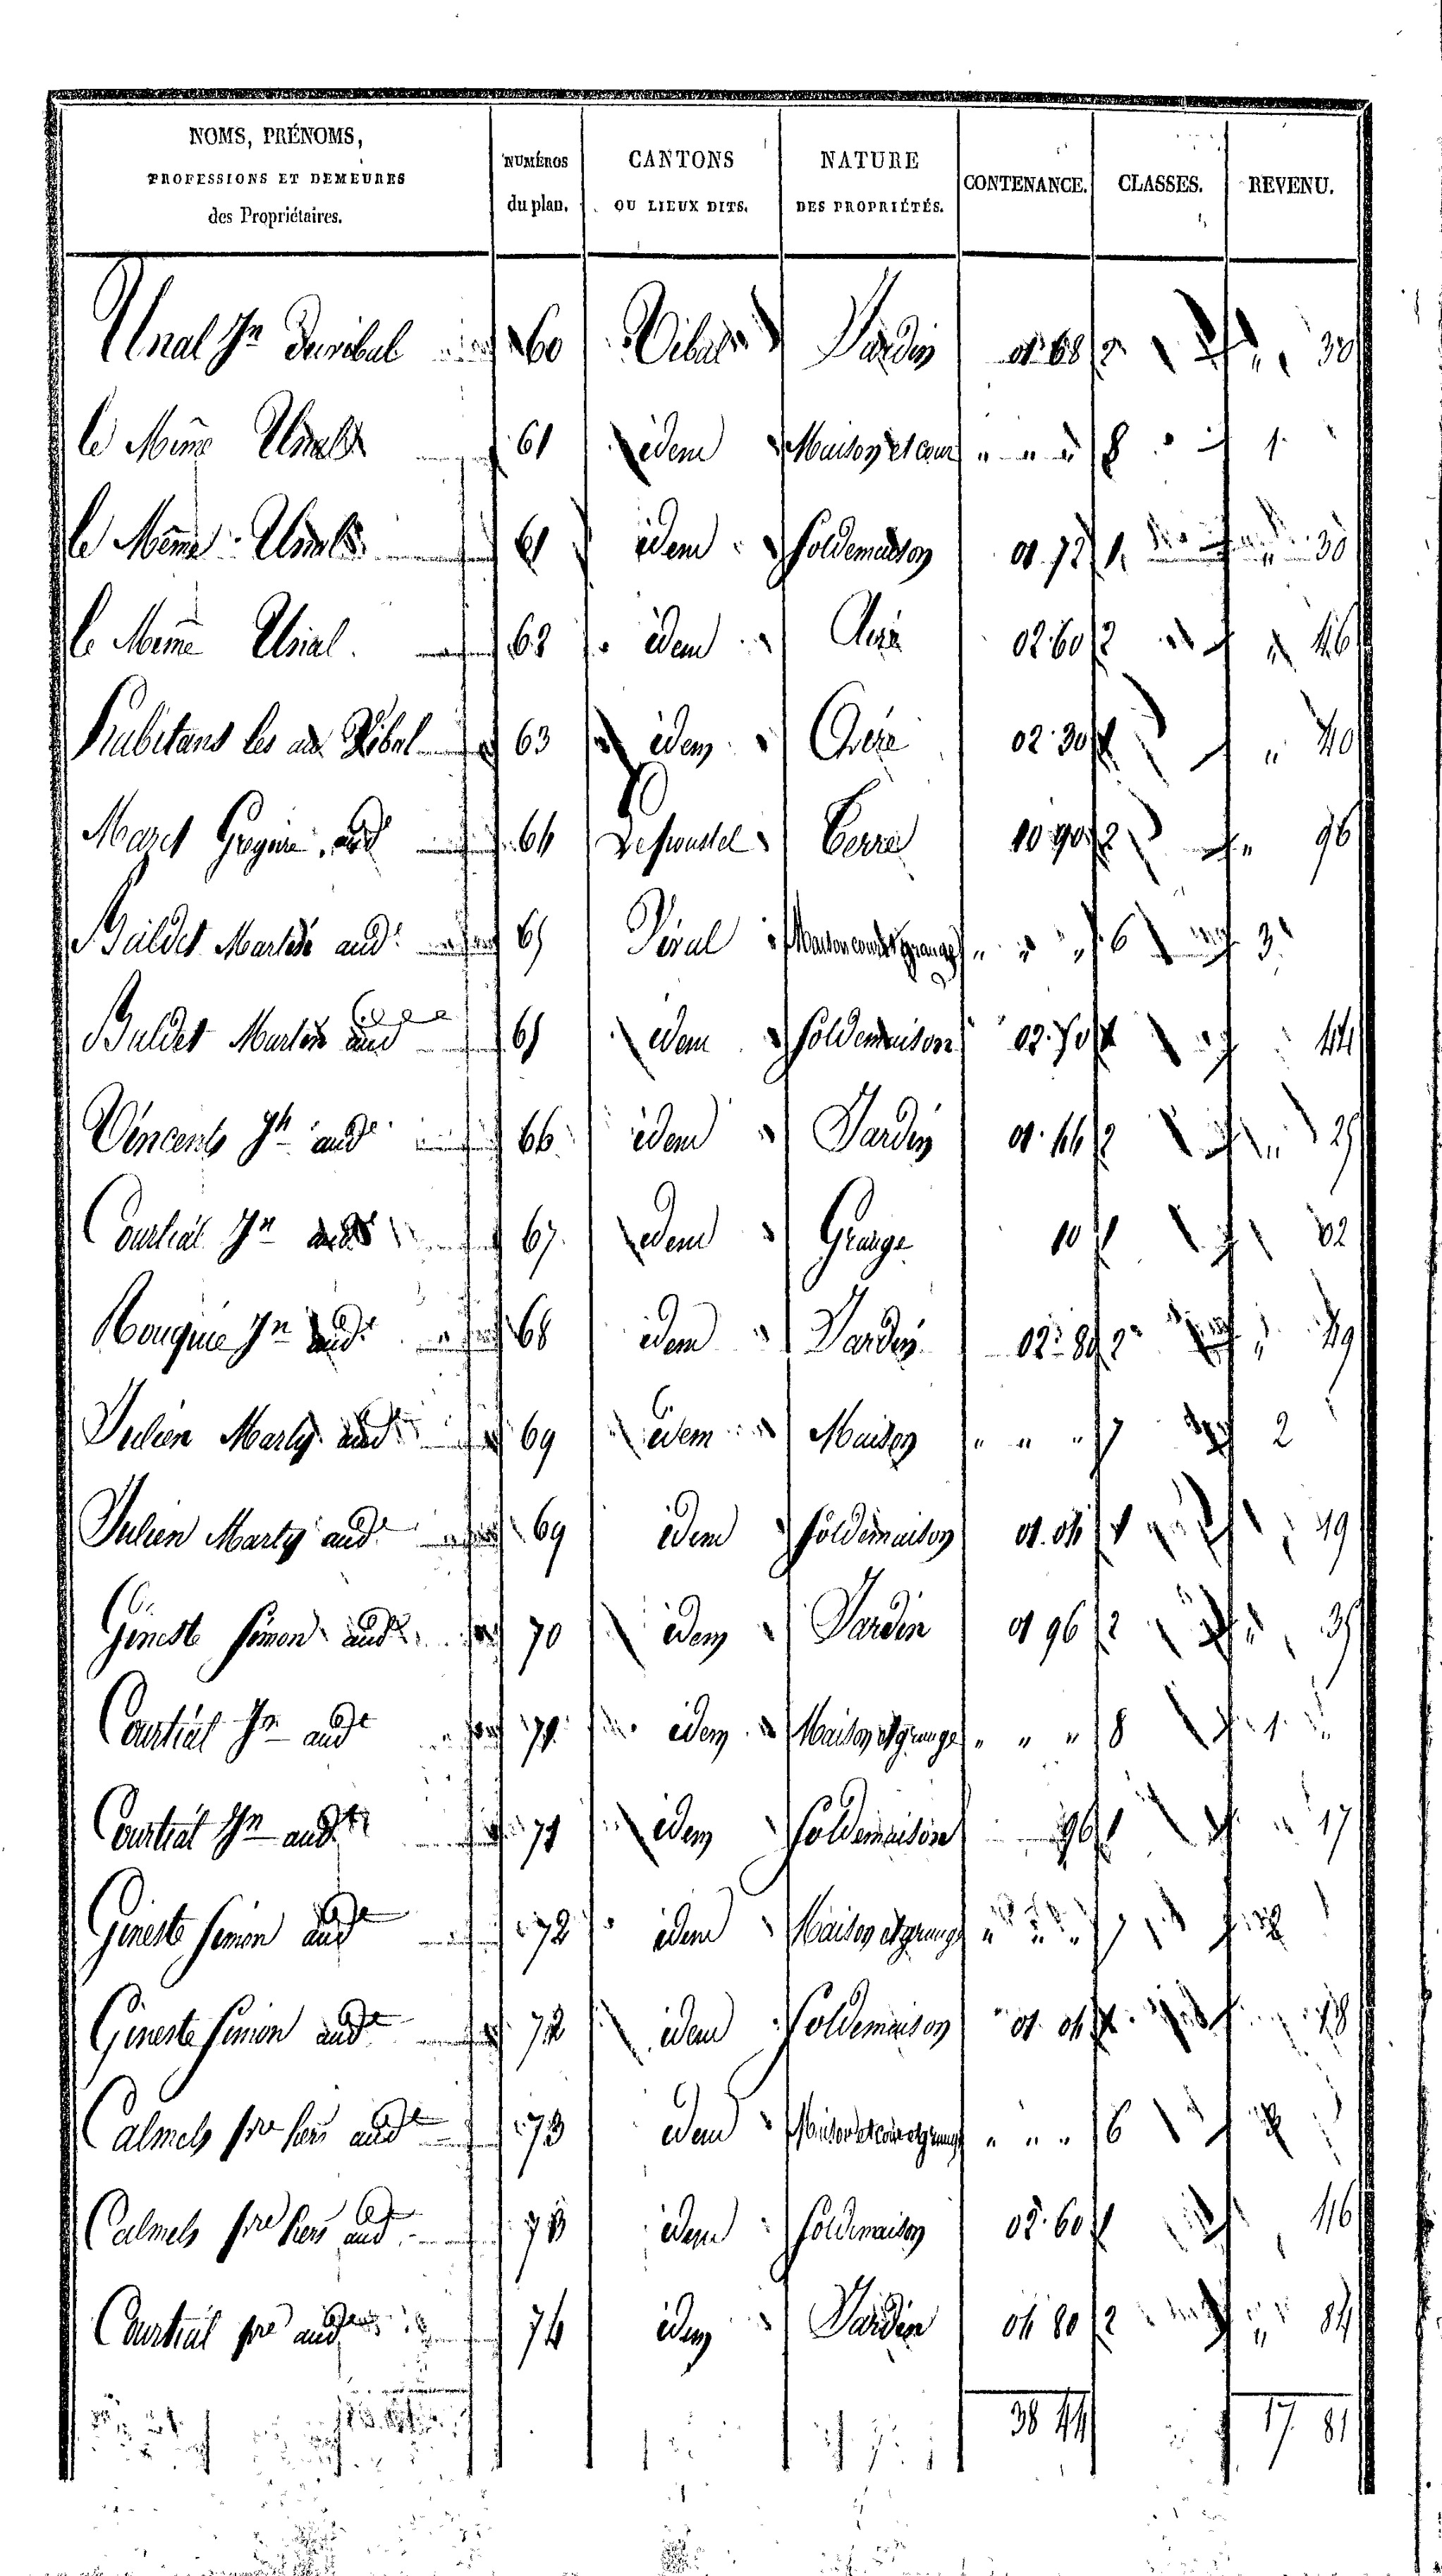 NOMS, PRÉNOMS, PROFESSIONS ET DEMEURES des Propriétaires. NUMÉROS du plan. CANTONS OU LIEUX DITS. NATURE DES PROPRIÉTÉS. CONTENANCE. CLASSES. REVENU.
Unal Jn Duvibal 60 Vibal Jardin 01 68 2 30
le Même Unal 61 idem Maison et cour " " " 8 1
le Même Unal 61 idem Soldemaison 01 72 1 " 30
le Même Unal 62 idem 02 60 2 " 46
habitans les au Vibal 63 idem 02 30 " 40
Mazet 64 Terre 10 90 2 " 96
Baldet Martin aud 65 Maison cour et grange " " " 6 3
Baldet Martin aud 65 idem Soldemaison 02 50 44
Vincent Jh aud 66 idem Jardin 01 44 2 " 25
Courtial Jn aud 67 idem Grange 10 1 02
Rouquié Jn aud 68 idem Jardin 02 80 2 " 49
Julien Marty aud 69 idem Maison " " " 7 2
Julien Marty aud 69 idem Soldemaison 01 04 1 19
Gineste Simon aud 70 idem Jardin 01 96 2 " 35
Courtial Jn aud 71 idem Maison et grange " " " 8 1
Courtial Jn aud 71 idem Soldemaison 96 1 17
Gineste Simon aud 72 idem Maison et grange " " " 7 2
Gineste Simon aud 72 idem Soldemaison 01 04 18
Calmels pre aud 73 idem Maison et cour et grange " " " 6
Calmels pre aud 73 idem Soldemaison 02 60 1 46
Courtial pre aud 74 idem Jardin 04 80 2 " 84
38 44 17 81